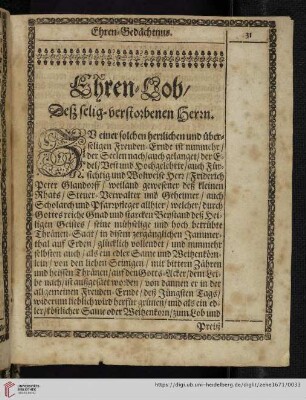 Ehren-Gedächtnus.
31
Ehren-Lob/
Deß selig-verstorbenen Herrn.
ZV einer solchen herrlichen und über-
seligen Freuden-Ernde ist nunmehr/
der Seelen nach/ auch gelanget/ der E-
del/ Vest und Hochgelehrte/ auch Für-
sichtig und Wolweise Herr/ Friderich
Peter Glandorff / weiland gewesener deß kleinen
Rhats / Steuer-Verwalter und Geheimer / auch
Scholarch und Pfarrpfleger allhier/ welcher/ durch
Gottes reiche Gnad und starcken Beystand deß Hei-
ligen Geistes / seine mühselige und hoch betrübte
Thränen-Saat/ in disem zergänglichen Jammer-
thal auf Erden / glücklich vollendet / und nunmehr
selbsten auch / als ein edler Same und Weitzenkörn-
lein / von den lieben Seinigen / mit bittern Zähren
und heissen Thränen/ auf den Gotts-Acker/ dem Lei-
be nach/ ist ausgesäet worden / von dannen er in der
allgemeinen Freuden-Ernde / deß Jüngsten Tags/
widerum lieblich wird herfür grünen/ und als ein ed-
ler/ köstlicher Same oder Weitzenkorn/ zum Lob und
Preiß
https://digi.ub.uni-heidelberg.de/diglit/zehe1671/0033